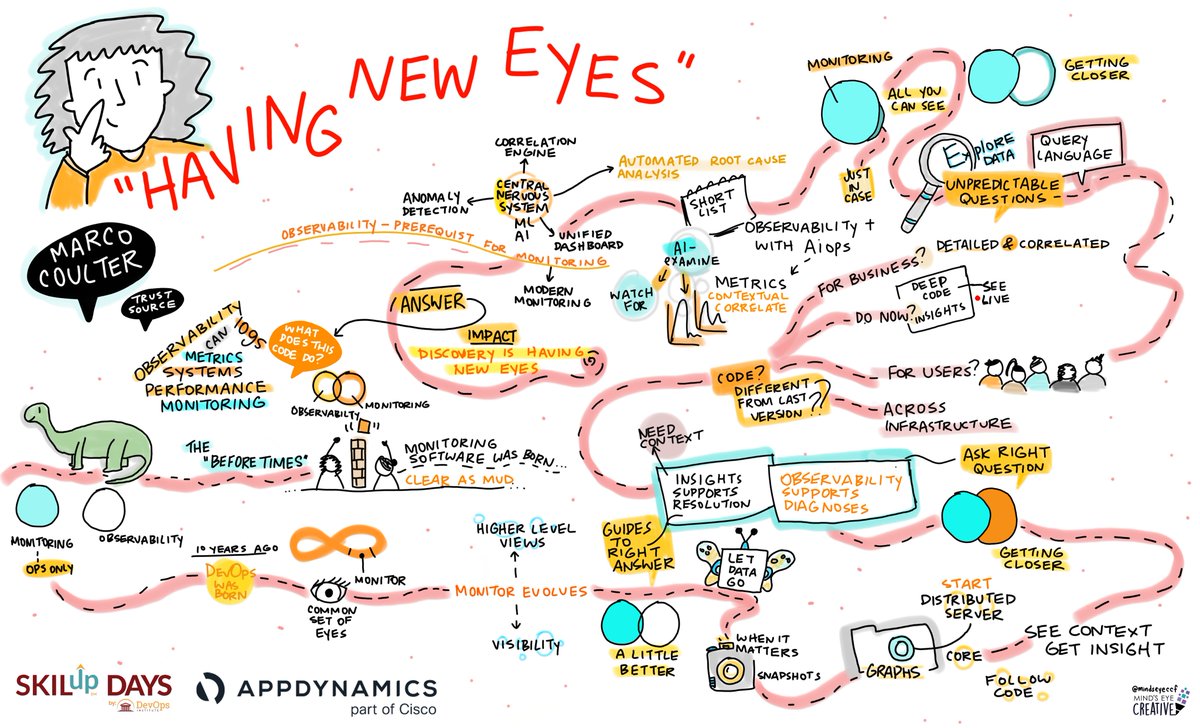 "HAVING NEW EYES"
MARCO
COULTER
TRUST
SOURCE
OBSERVABILITY
CAN
logs
METRICS
SYSTEMS
PERFORMANCE
MONITORING
WHAT
DOES THIS
CODE DO?
OBSERVABILTY
MONITORING
OBSERVABILITY - PREREQUIST FOR
MONITORING
CORRELATION
ENGINE
ANOMALY
DETECTION
CENTRAL
NERVOUS
SYSTEM
ML
AI
AUTOMATED ROOT CAUSE
ANALYSIS
UNIFIED
DASHBOARD
MODERN
MONITORING
ANSWER
IMPACT
DISCOVERY IS HAVING
NEW EYES
SHORT
LIST
OBSERVABILITY +
WITH AIOPS
AI-
EXAMINE
WATCH
FOR
METRICS
CONTEXTUAL
CORRELATE
MONITORING
ALL YOU
CAN SEE
JUST
IN
CASE
GETTING
CLOSER
EXPLORE
DATA
QUERY
LANGUAGE
UNPREDICTABLE
QUESTIONS
DETAILED & CORRELATED
FOR BUSINESS?
DO NOW?
DEEP
CODE
INSIGHTS
SEE
LIVE
FOR USERS?
CODE?
DIFFERENT
FROM LAST
VERSION??
ACROSS
INFRASTRUCTURE
NEED
CONTEXT
INSIGHTS
SUPPORTS
RESOLUTION
OBSERVABILITY
SUPPORTS
DIAGNOSES
ASK RIGHT
QUESTION
GUIDES
TO
RIGHT
ANSWER
LET
DATA
GO
GETTING
CLOSER
THE
"BEFORE TIMES"
MONITORING
SOFTWARE WAS BORN...
CLEAR AS MUD
MONITORING
OBSERVABILITY
OPS ONLY
10 YEARS AGO
DevOps
WAS
BORN
MONITOR
COMMON
SET OF
EYES
HIGHER LEVEL
VIEWS
MONITOR EVOLVES
VISIBILITY
A LITTLE
BETTER
WHEN IT
MATTERS
SNAPSHOTS
GRAPHS
START
DISTRIBUTED
SERVER
CORE
FOLLOW
CODE
SEE CONTEXT
GET INSIGHT
SKILup DAYS
by: DevOps
INSTITUTE
APPDYNAMICS
part of Cisco
@mindseyeccf
MIND'S EYE
CREATIVE